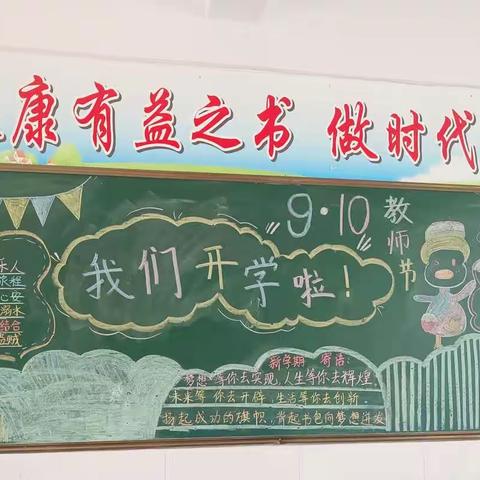 康有益之书 做时代
9·10
教师节
我们开学啦！
溺水
结合
新学期 寄语
梦想等你去实现，人生等你去辉煌
未来等你去开辟，生活等你去创新．
扬起成功的旗帜，背起书包向梦想进发